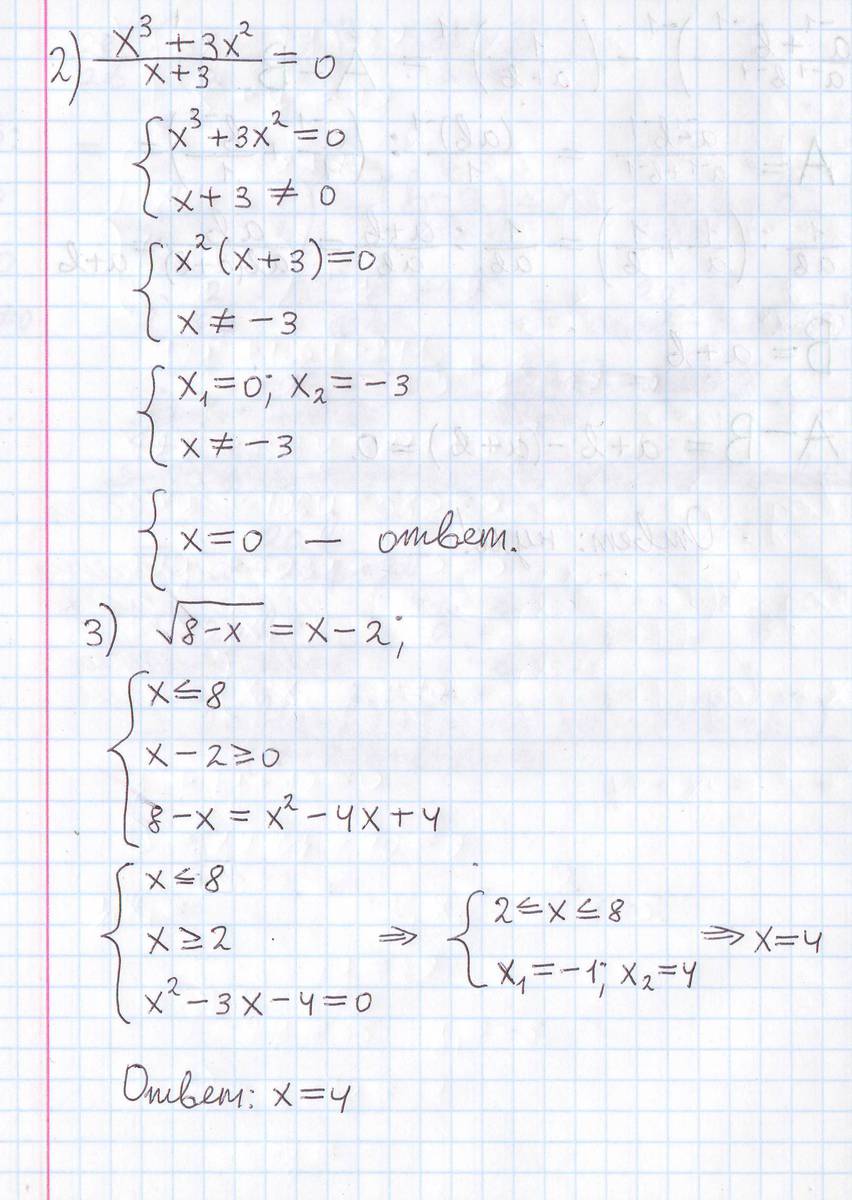 2) (x³ + 3x²)/(x+3) = 0
{ x³ + 3x² = 0
x + 3 ≠ 0
{ x² (x + 3) = 0
x ≠ -3
{ x₁ = 0; x₂ = -3
x ≠ -3
{ x = 0 — ответ.
3) √(8-x) = x - 2;
{ x ≤ 8
x - 2 ≥ 0
8 - x = x² - 4x + 4
{ x ≤ 8
x ≥ 2
x² - 3x - 4 = 0
⇒ { 2 ≤ x ≤ 8
x₁ = -1; x₂ = 4
⇒ x = 4
Ответ: x = 4